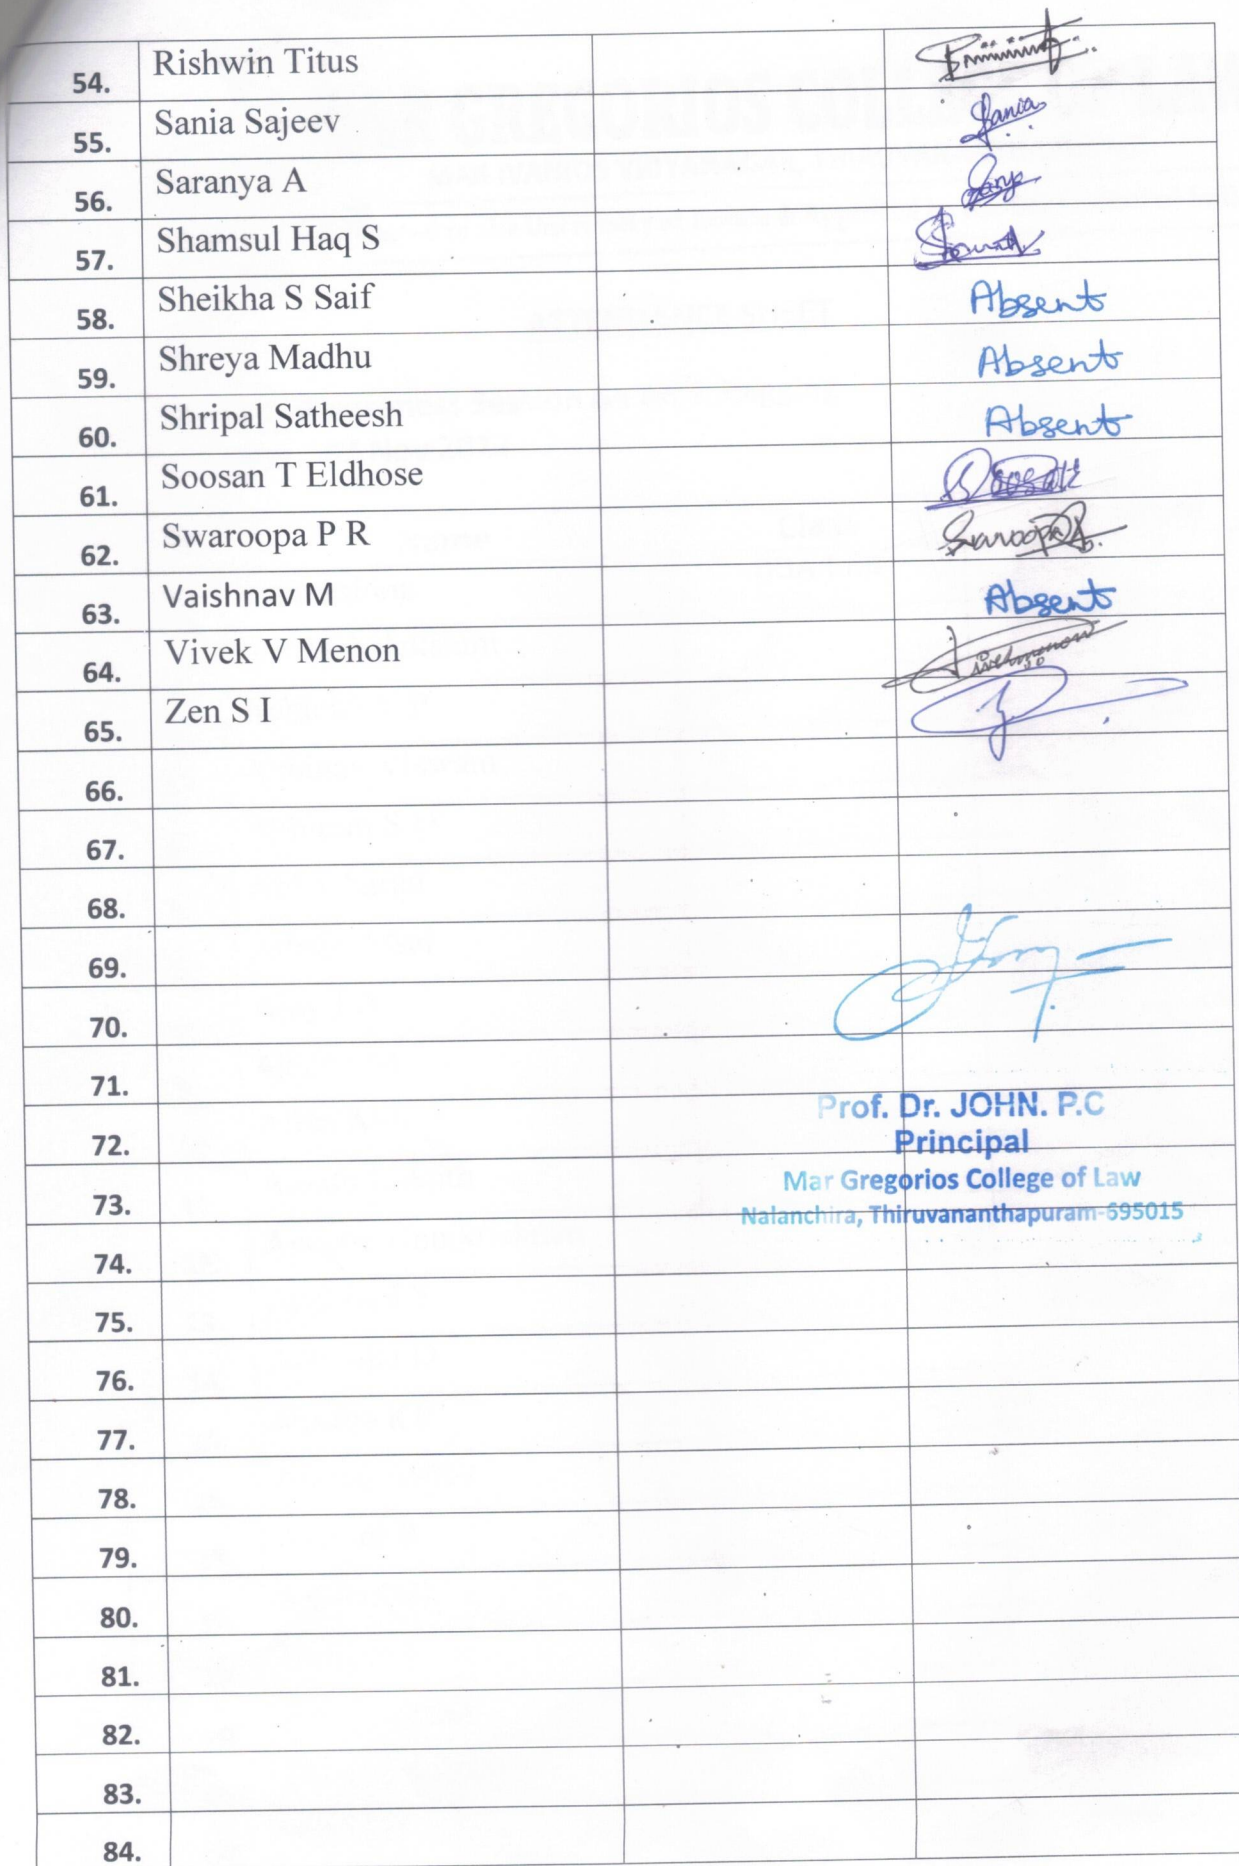 54. Rishwin Titus
55. Sania Sajeev Sania
56. Saranya A
57. Shamsul Haq S
58. Sheikha S Saif Absent
59. Shreya Madhu Absent
60. Shripal Satheesh Absent
61. Soosan T Eldhose
62. Swaroopa P R
63. Vaishnav M Absent
64. Vivek V Menon
65. Zen S I
66.
67.
68.
69.
70.
71.
Prof. Dr. JOHN. P.C
72. Principal
Mar Gregorios College of Law
73.
Nalanchira, Thiruvananthapuram-695015
74.
75.
76.
77.
78.
79.
80.
81.
82.
83.
84.